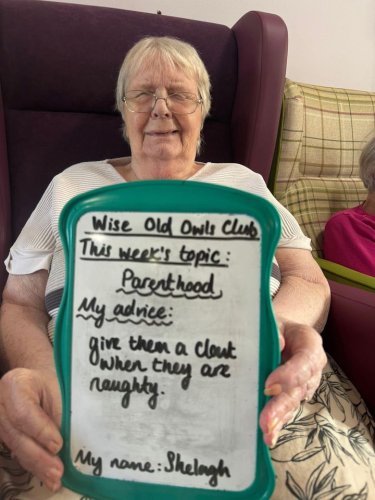 Wise Old Owls Club
This week's topic:
Parenthood
My advice:
give them a clout
when they are
naughty.
My name: Shelagh